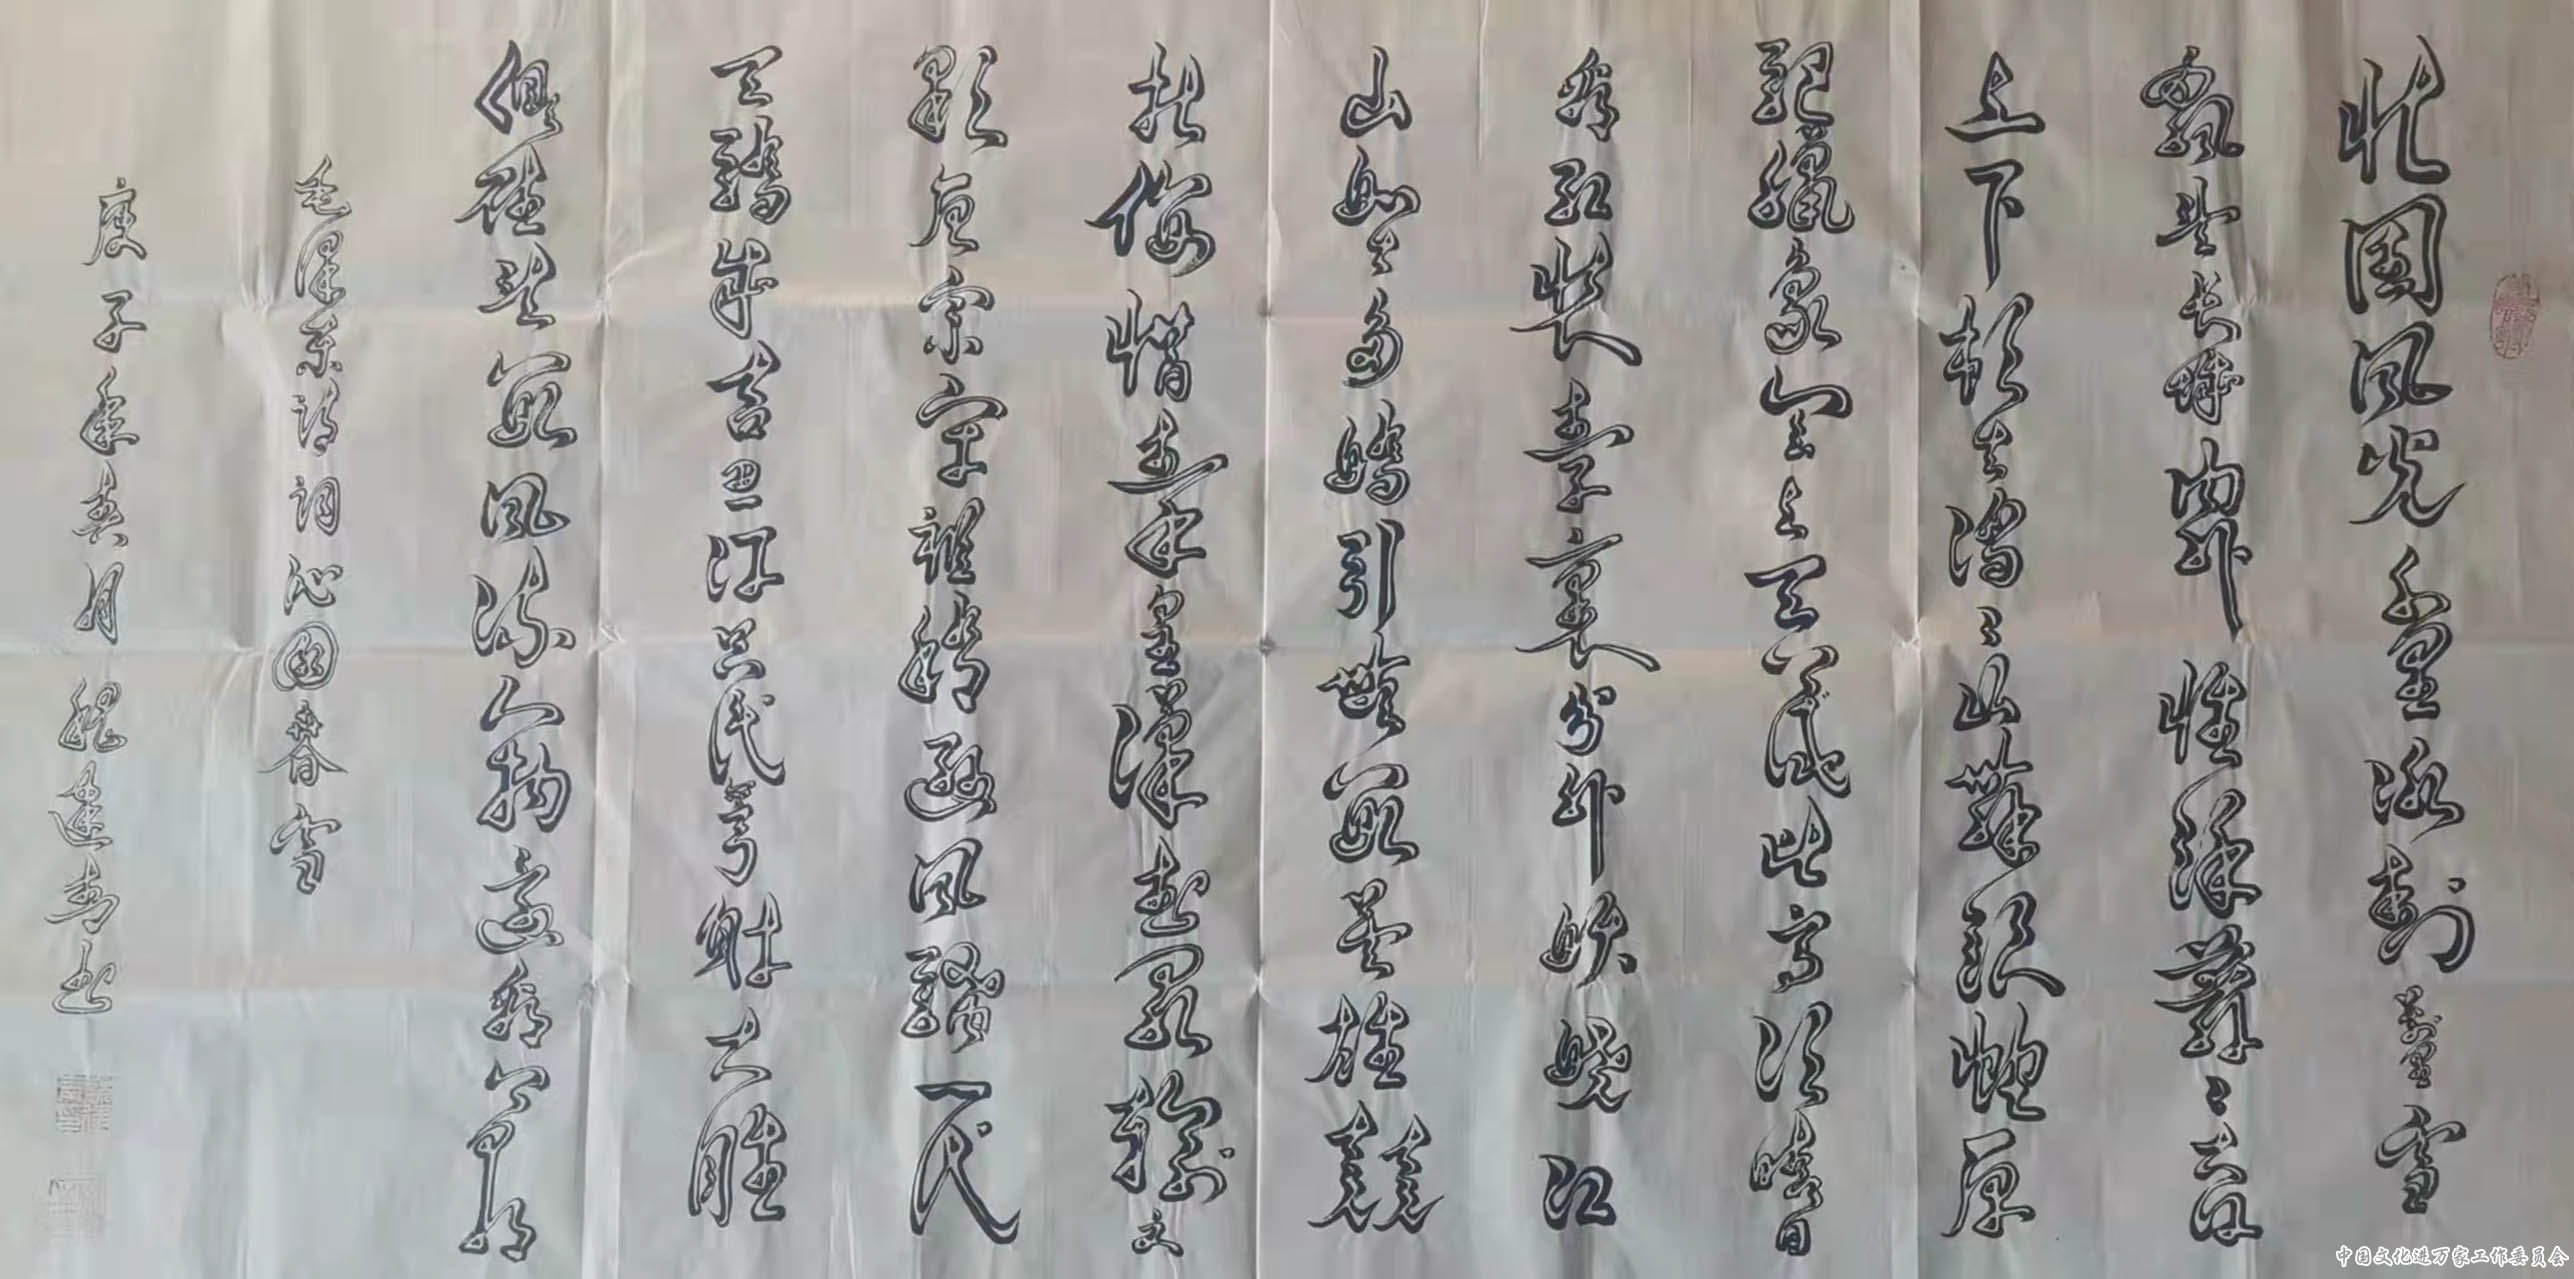 北国风光千里冰封萬里雪
飘望长城内外惟馀莽莽大河
上下顿失滔滔山舞银蛇原
驰蠟象欲与天公试比高须晴日
看红装素裹分外妖娆江
山如此多娇引無数英雄競
折腰惜秦皇漢武略输文
彩唐宗宋祖稍逊风骚一代
天骄成吉思汗只识弯射大雕
俱往矣数风流人物还看今朝
毛泽东诗词沁园春雪
庚子年月建寿书
中国文化进万家工作委员会